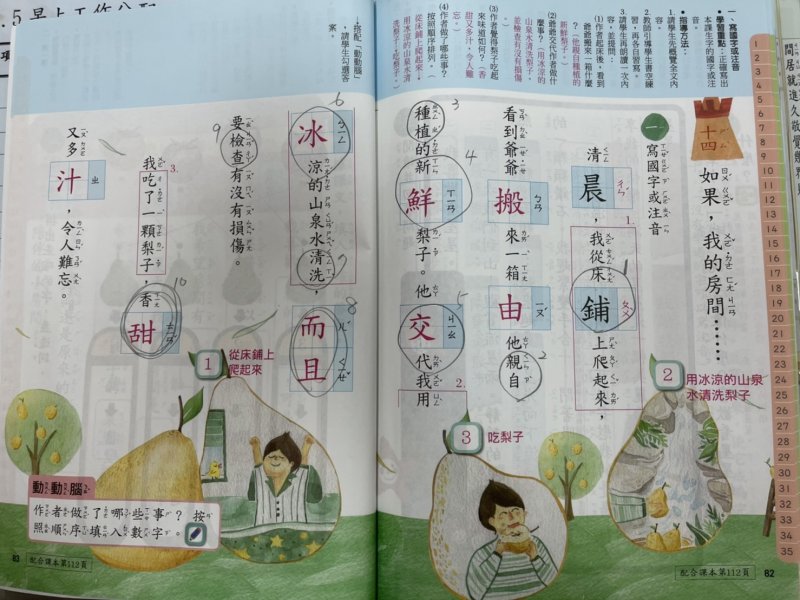 一、寫國字或注音
學習重點：正確寫出本課生字的國字或注音。
指導方法：
1.請學生先概覽全文內容。
2.教師引導學生書空練習，再各自習寫。
3.請學生再朗讀一次內容，並提問：
(1)作者起床後，看到爺爺搬來一箱什麼？（他親自種植的新鮮梨子。）
(2)爺爺交代作者做什麼事？（用冰涼的山泉水清洗梨子，並檢查有沒有損傷。）
(3)作者覺得梨子吃起來味道如何？（香甜又多汁，令人難忘。）
(4)作者做了哪些事？按照順序排列。（從床鋪上爬起來，用冰涼的山泉水清洗梨子，吃梨子。）
↓搭配「動動腦」，請學生勾選答案。
十四
如果，我的房間……
一
寫國字或注音
清晨ㄔㄣˊ，我從床
1.
鋪ㄆㄨ上爬起來，
看到爺爺搬ㄅㄢ來一箱
由ㄧㄡˊ他親自
種植的新鮮ㄒㄧㄢ梨子。他
交ㄐㄧㄠ代我用
2.
冰ㄅㄧㄥ涼的山泉水清洗，
而ㄦˊ且ㄑㄧㄝˇ
要檢查有沒有損傷。
3.
我吃了一顆梨子，香
甜ㄊㄧㄢˊ
又多汁ㄓ，令人難忘。
1
從床鋪上
爬起來
2
用冰涼的山泉
水清洗梨子
3
吃梨子
動動腦
作者做了哪些事？按
照順序填入數字。
83
配合課本第112頁
配合課本第112頁
82
1
2
3
4
5
6
7
8
9
10
11
12
13
14
15
16
17
18
19
20
21
22
23
24
25
26
27
28
29
30
31
32
33
34
35